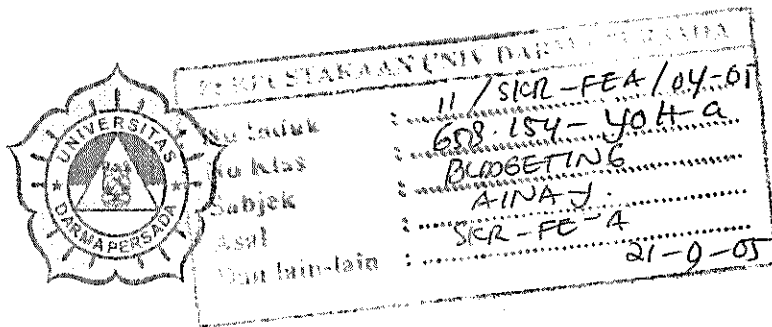 UNIVERSITAS
DARMA PERSADA
PERPUSTAKAAN UNIV DARMA PERSADA
No Induk : 11 / SKR-FEA / 04-05
No Klas : 658.154-YOH-a
Subjek : BUDGETING
Asal : AINA Y.
Dan lain-lain : SKR-FE-A
21-9-05